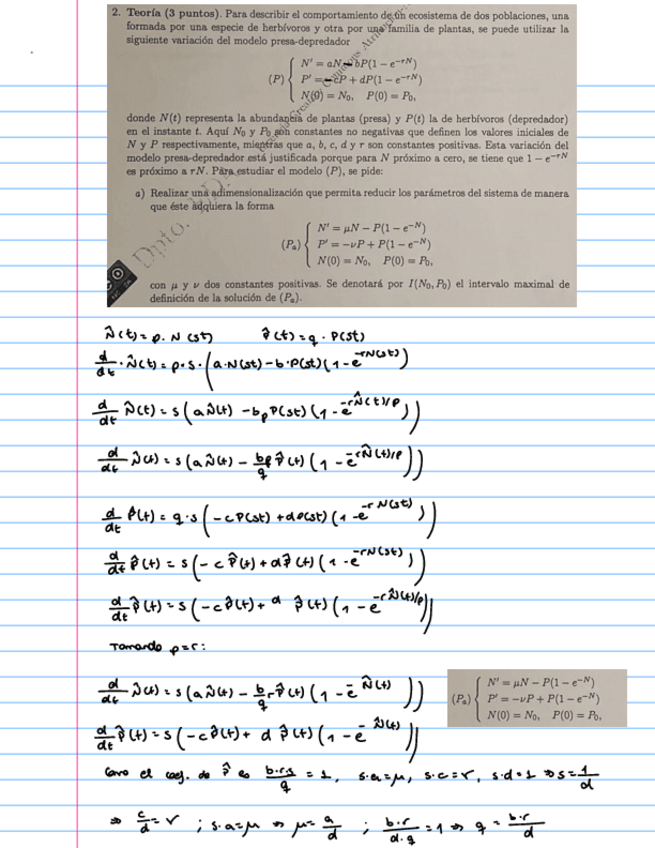 2. Teoría (3 puntos). Para describir el comportamiento de un ecosistema de dos poblaciones, una
formada por una especie de herbívoros y otra por una familia de plantas, se puede utilizar la
siguiente variación del modelo presa-depredador
(P) { N' = aN - bP(1 - e^{-rN})
P' = -cP + dP(1 - e^{-rN})
N(0) = N₀, P(0) = P₀,
donde N(t) representa la abundancia de plantas (presa) y P(t) la de herbívoros (depredador)
en el instante t. Aquí N₀ y P₀ son constantes no negativas que definen los valores iniciales de
N y P respectivamente, mientras que a, b, c, d y r son constantes positivas. Esta variación del
modelo presa-depredador está justificada porque para N próximo a cero, se tiene que 1 - e^{-rN}
es próximo a rN. Para estudiar el modelo (P), se pide:
a) Realizar una adimensionalización que permita reducir los parámetros del sistema de manera
que éste adquiera la forma
(Pₐ) { N' = μN - P(1 - e^{-N})
P' = -νP + P(1 - e^{-N})
N(0) = N₀, P(0) = P₀,
con μ y ν dos constantes positivas. Se denotará por I(N₀, P₀) el intervalo maximal de
definición de la solución de (Pₐ).
Dpto.
N̂(t) = p · N(st) P̂(t) = q · P(st)
d/dt · N̂(t) = p · s · (a · N(st) - b · P(st)(1 - e^{-rN(st)})
d/dt N̂(t) = s(aN̂(t) - bpP(st)(1 - e^{-rN̂(t)/p}))
d/dt N̂(t) = s(aN̂(t) - bp/q P̂(t)(1 - e^{-rN̂(t)/p}))
d/dt P̂(t) = q · s(-cP(st) + dP(st)(1 - e^{-rN(st)}))
d/dt P̂(t) = s(-cP̂(t) + dP̂(t)(1 - e^{-rN(st)}))
d/dt P̂(t) = s(-cP̂(t) + d P̂(t)(1 - e^{-rN̂(t)/p}))
Tomando p = r:
d/dt N̂(t) = s(aN̂(t) - b/q rP̂(t)(1 - e^{-N̂(t)}))
(Pₐ) { N' = μN - P(1 - e^{-N})
P' = -νP + P(1 - e^{-N})
N(0) = N₀, P(0) = P₀,
d/dt P̂(t) = s(-cP̂(t) + d P̂(t)(1 - e^{-N̂(t)}))
Como el coef. de P̂ es b·r·s/q = 1, s·a = μ, s·c = ν, s·d = 1 ⇒ s = 1/d
⇒ c/d = ν ; s·a = μ ⇒ μ = a/d ; b·r/d·q = 1 ⇒ q = b·r/d